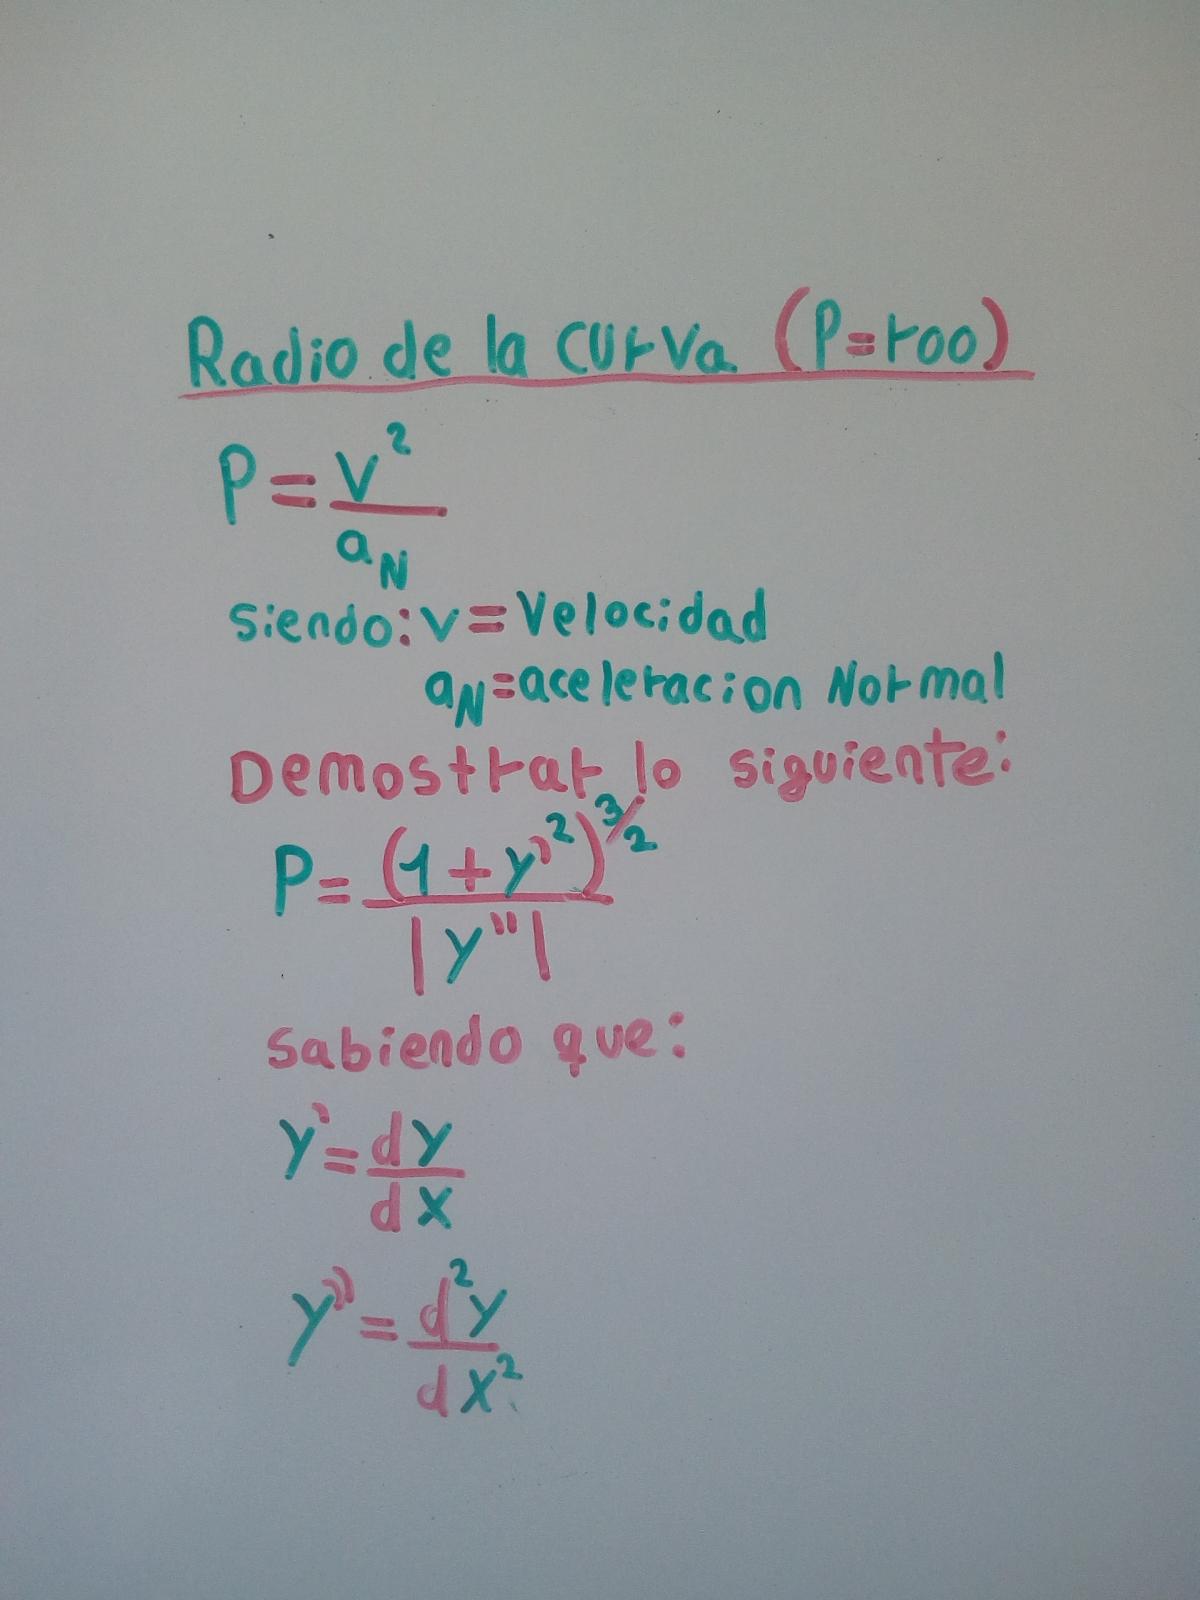 Radio de la curva (P=roo)
P = v²/a_N
siendo: v = Velocidad
a_N = aceleracion Normal
Demostrar lo siguiente:
P = (1 + y'²)^3/2 / |y''|
sabiendo que:
y' = dy/dx
y'' = d²y/dx²